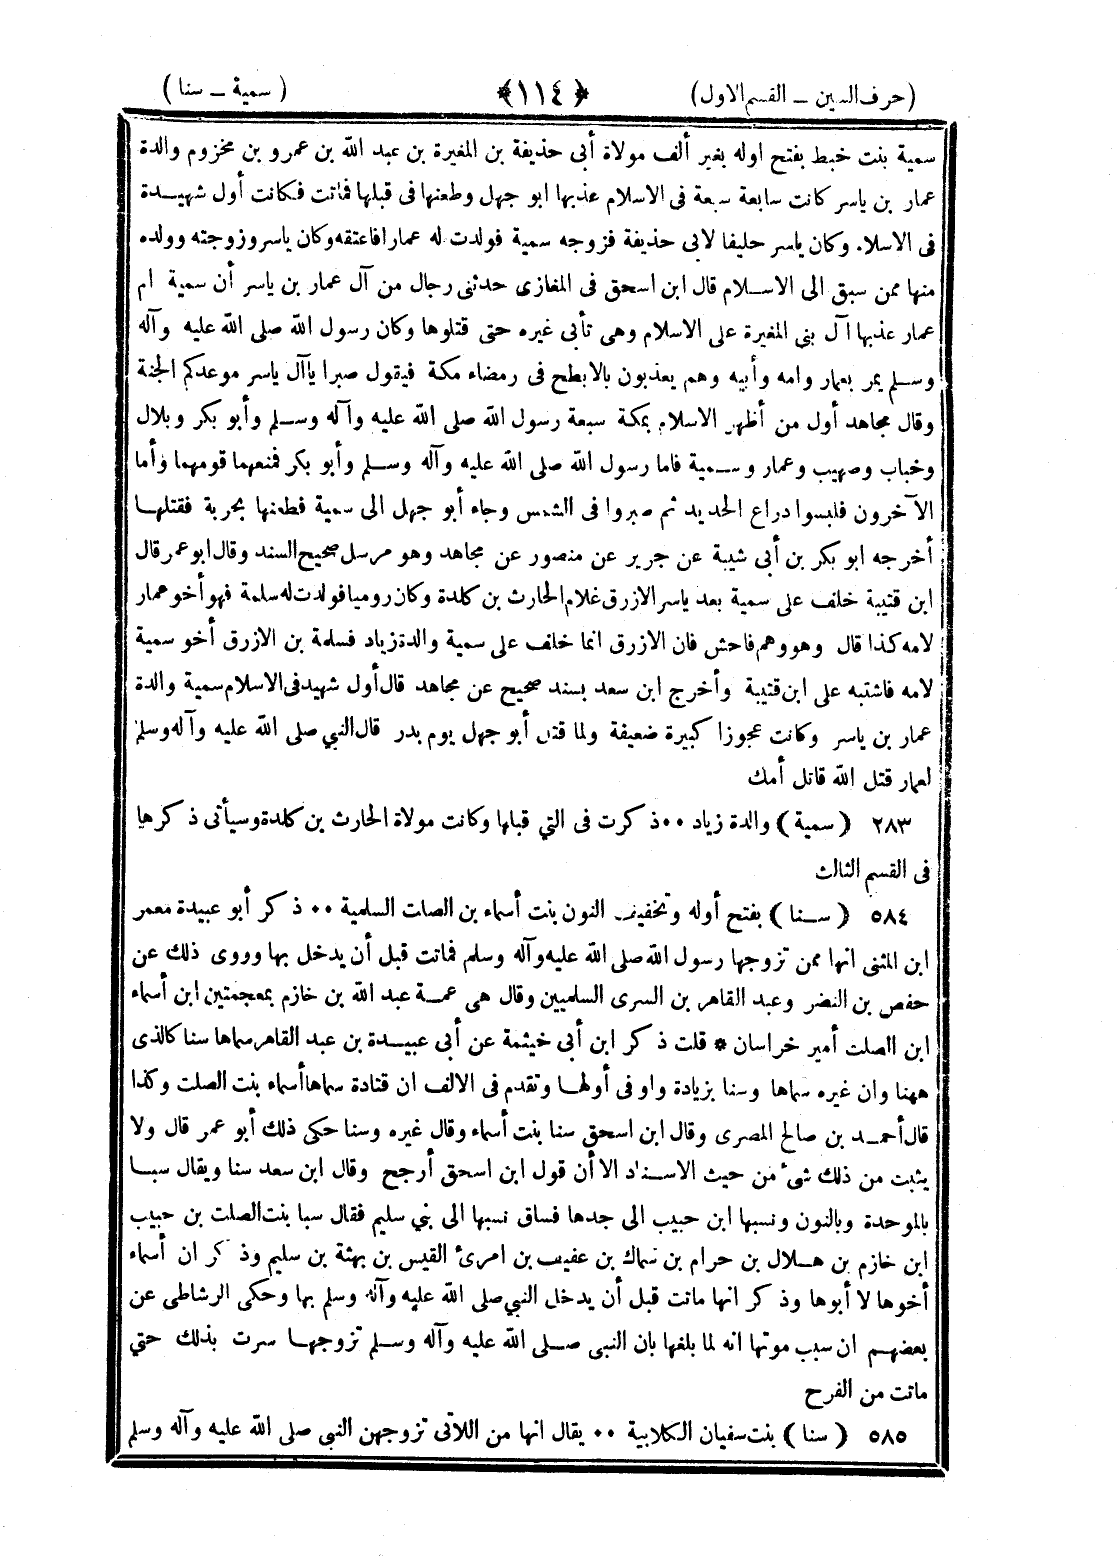 (حرف السين ـ القسم الاول) ﴿١١٤﴾ (سمية ـ سنا)
سمية بنت خبط بفتح اوله بغير ألف مولاة أبى حذيفة بن المغيرة بن عبد الله بن عمرو بن مخزوم والدة
عمار بن ياسر كانت سابعة سبعة فى الاسلام عذبها ابو جهل وطعنها فى قبلها فماتت فكانت أول شهيدة
فى الاسلا. وكان ياسر حليفا لابى حذيفة فزوجه سمية فولدت له عمارا فاعتقه وكان ياسر وزوجته وولده
منها ممن سبق الى الاسلام قال ابن اسحق فى المغازى حدثنى رجال من آل عمار بن ياسر أن سمية ام
عمار عذبها آل بني المغيرة على الاسلام وهى تأبى غيره حتى قتلوها وكان رسول الله صلى الله عليه وآله
وسلم يمر بعمار وامه وأبيه وهم يعذبون بالابطح فى رمضاء مكة فيقول صبرا ياآل ياسر موعدكم الجنة
وقال مجاهد أول من أظهر الاسلام بمكة سبعة رسول الله صلى الله عليه وآله وسلم وأبو بكر وبلال
وخباب وصهيب وعمار وسمية فاما رسول الله صلى الله عليه وآله وسلم وأبو بكر فمنعهما قومهما وأما
الآخرون فلبسوا دراع الحديد ثم صبروا فى الشمس وجاء أبو جهل الى سمية فطعنها بحربة فقتلها
أخرجه ابو بكر بن أبى شيبة عن جرير عن منصور عن مجاهد وهو مرسل صحيح السند وقال ابو عمر قال
ابن قتيبة خلف على سمية بعد ياسر الازرق غلام الحارث بن كلدة وكان روميا فولدت له سلمة فهو أخو عمار
لامه كذا قال وهو وهم فاحش فان الازرق انما خلف على سمية والدة زياد فسلمة بن الازرق أخو سمية
لامه فاشتبه على ابن قتيبة وأخرج ابن سعد بسند صحيح عن مجاهد قال أول شهيد فى الاسلام سمية والدة
عمار بن ياسر وكانت عجوزا كبيرة ضعيفة ولما قتل أبو جهل يوم بدر قال النبي صلى الله عليه وآله وسلم
لعمار قتل الله قاتل أمك
٢٨٣ (سمية) والدة زياد ٠٠ ذكرت فى التي قبلها وكانت مولاة الحارث بن كلدة وسيأتى ذكرها
فى القسم الثالث
٥٨٤ (سنا) بفتح أوله وتخفيف النون بنت أسماء بن الصات السلمية ٠٠ ذكر أبو عبيدة معمر
ابن المثنى انها ممن تزوجها رسول الله صلى الله عليه وآله وسلم فماتت قبل أن يدخل بها وروى ذلك عن
حفص بن النضر وعبد القاهر بن السرى السلميين وقال هى عمة عبد الله بن خازم بمعجمتين ابن أسماء
ابن الصلت أمير خراسان * قلت ذكر ابن أبى خيثمة عن أبى عبيدة بن عبد القاهر سماها سنا كالذى
ههنا وان غيره سماها وسنا بزيادة واو فى أولها وتقدم فى الالف ان قتادة سماها أسماء بنت الصلت وكذا
قال أحمد بن صالح المصرى وقال ابن اسحق سنا بنت أسماء وقال غيره وسنا حكى ذلك أبو عمر قال ولا
يثبت من ذلك شئ من حيث الاسناد الا أن قول ابن اسحق أرجح وقال ابن سعد سنا ويقال سبا
بالموحدة وبالنون ونسبها ابن حبيب الى جدها فساق نسبها الى بني سليم فقال سبا بنت الصلت بن حبيب
ابن خازم بن هلال بن حرام بن سماك بن عفيف بن امرئ القيس بن بهثة بن سليم وذكر ان أسماء
أخوها لا أبوها وذكر انها ماتت قبل أن يدخل النبي صلى الله عليه وآله وسلم بها وحكى الرشاطى عن
بعضهم ان سبب موتها انه لما بلغها بان النبى صلى الله عليه وآله وسلم تزوجها سرت بذلك حتي
ماتت من الفرح
٥٨٥ (سنا) بنت سفيان الكلابية ٠٠ يقال انها من اللاتى تزوجهن النبى صلى الله عليه وآله وسلم